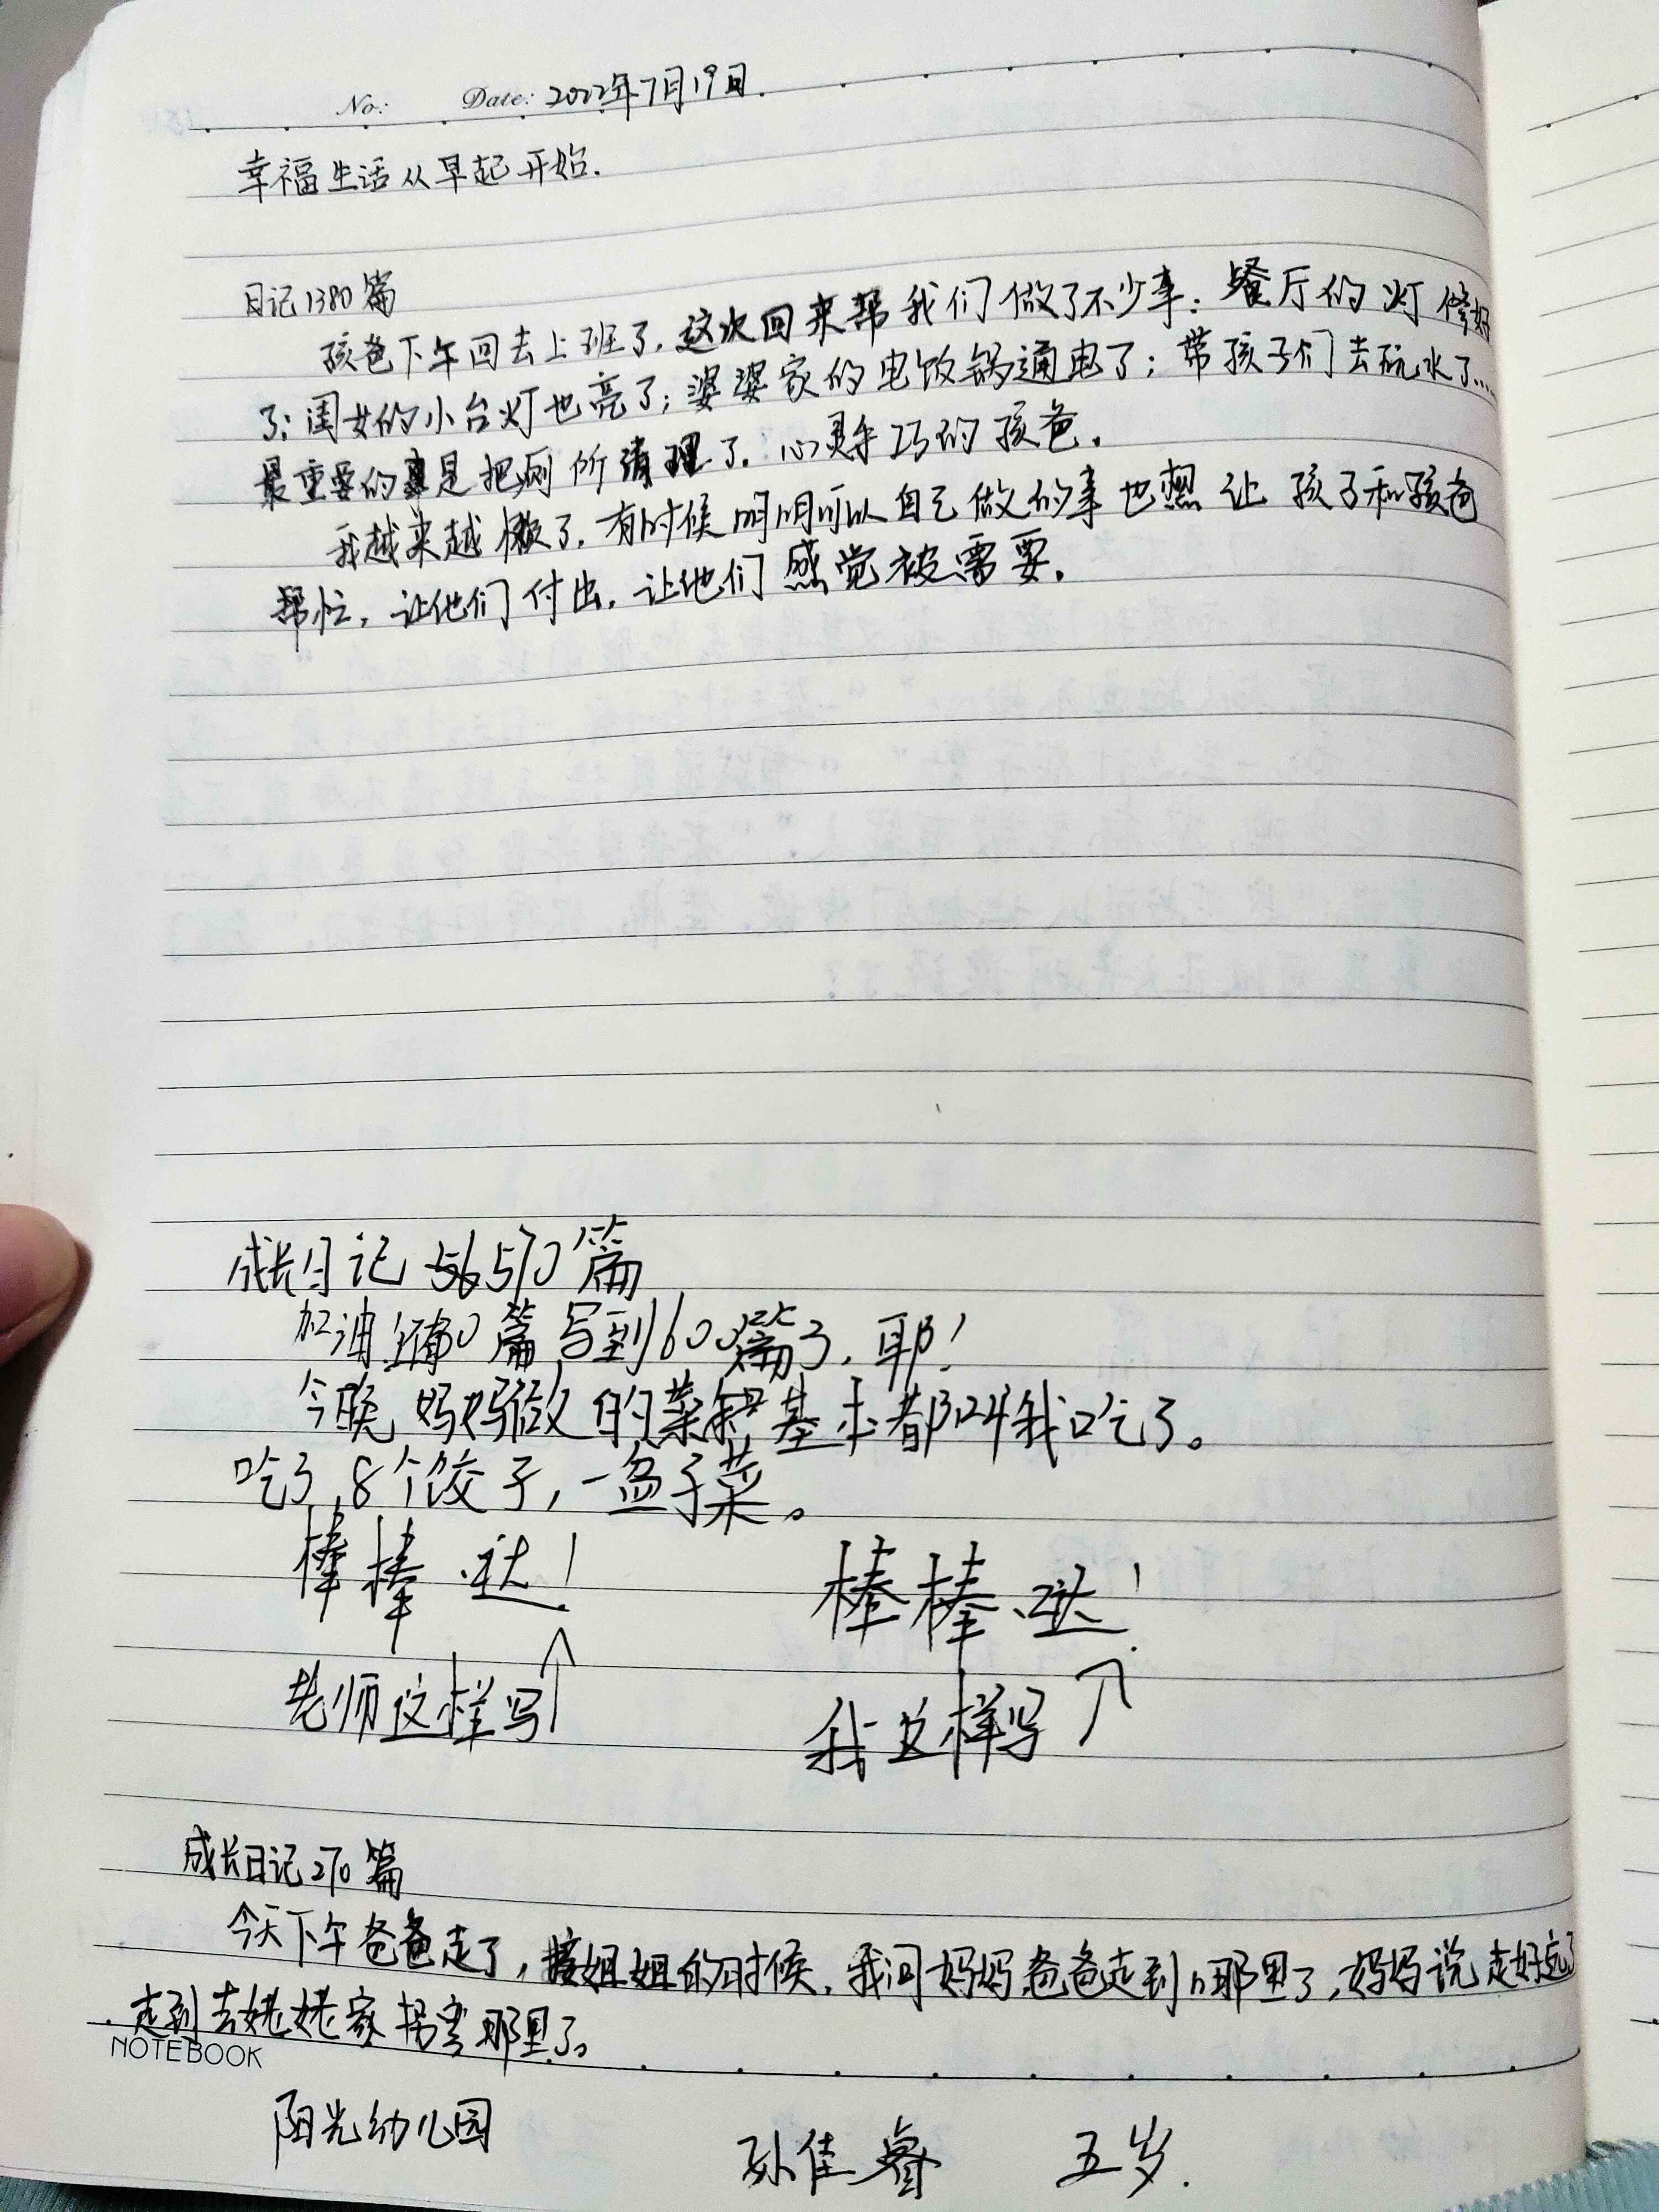 No: Date: 2022年7月19日.
幸福生活从早起开始.
日记1380篇
孩爸下午回去上班了,这次回来帮我们做了不少事:餐厅的灯修好
了;闺女的小台灯也亮了;婆婆家的电饭锅通电了;带孩子们去玩水了……
最重要的是把厕所清理了.心灵手巧的孩爸.
我越来越懒了.有时候明明可以自己做的事也想让孩子和孩爸
帮忙,让他们付出.让他们感觉被需要.
成长日记 570篇
加油 篇写到600篇了,耶!
今晚妈妈做的菜 基本都叫我吃了。
吃了,8个饺子,一盆子菜。
棒棒哒! 棒棒哒!
老师这样写 我这样写
成长日记270篇
今天下午爸爸走了,接姐姐的时候,我问妈妈爸爸走到哪里了,妈妈说走好远了
.走到去姥姥家拐弯那里了。
NOTEBOOK
阳光幼儿园 孙佳睿 五岁.